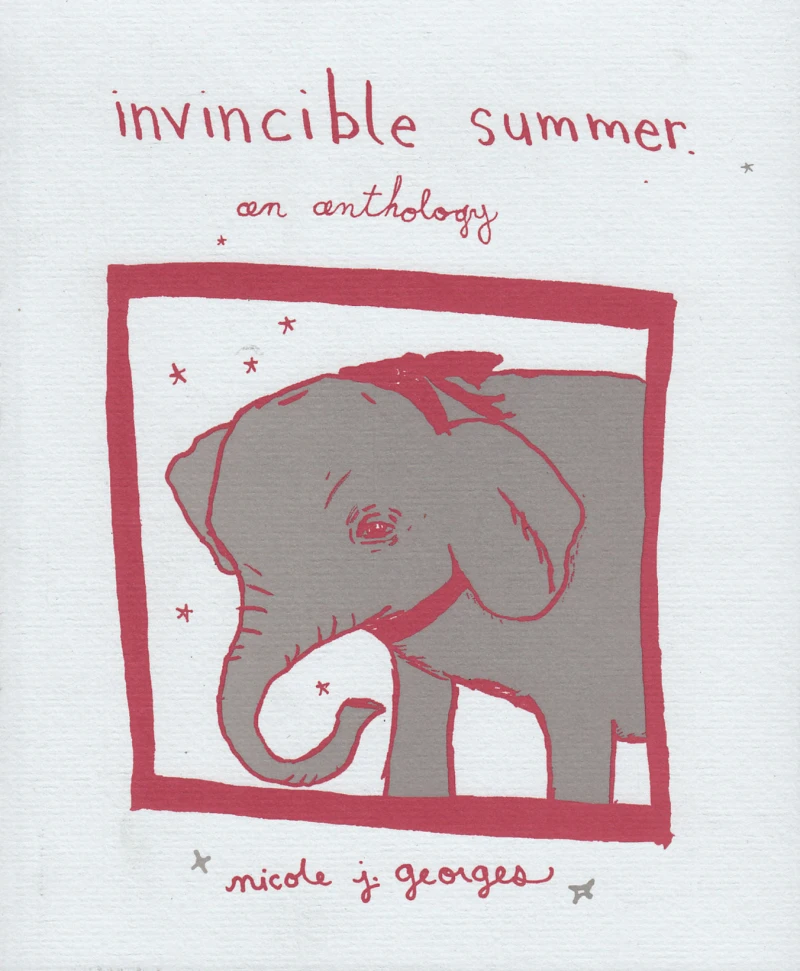 invincible summer.
an anthology
nicole j. georges